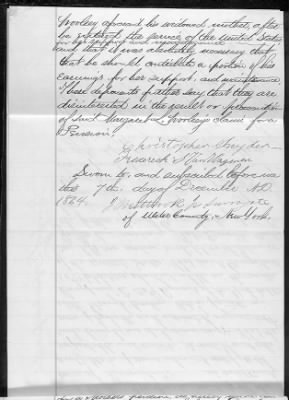 Woolsey afforded his widowed mother, after
he entered the service of the United States
for her support and
and that it was absolutely necessary that
that he should contribute a portion of his
earnings for her support. and maintenance
These deponents further say that they are
disinterested in the result or prosecution
of said Margaret L. Woolsey's claim for a
Pension.
Christopher Snyder
Frederick
Sworn to, and subscribed before me
this 7th. day of December A.D.
1864.
Surrogate
of Ulster County, New York.